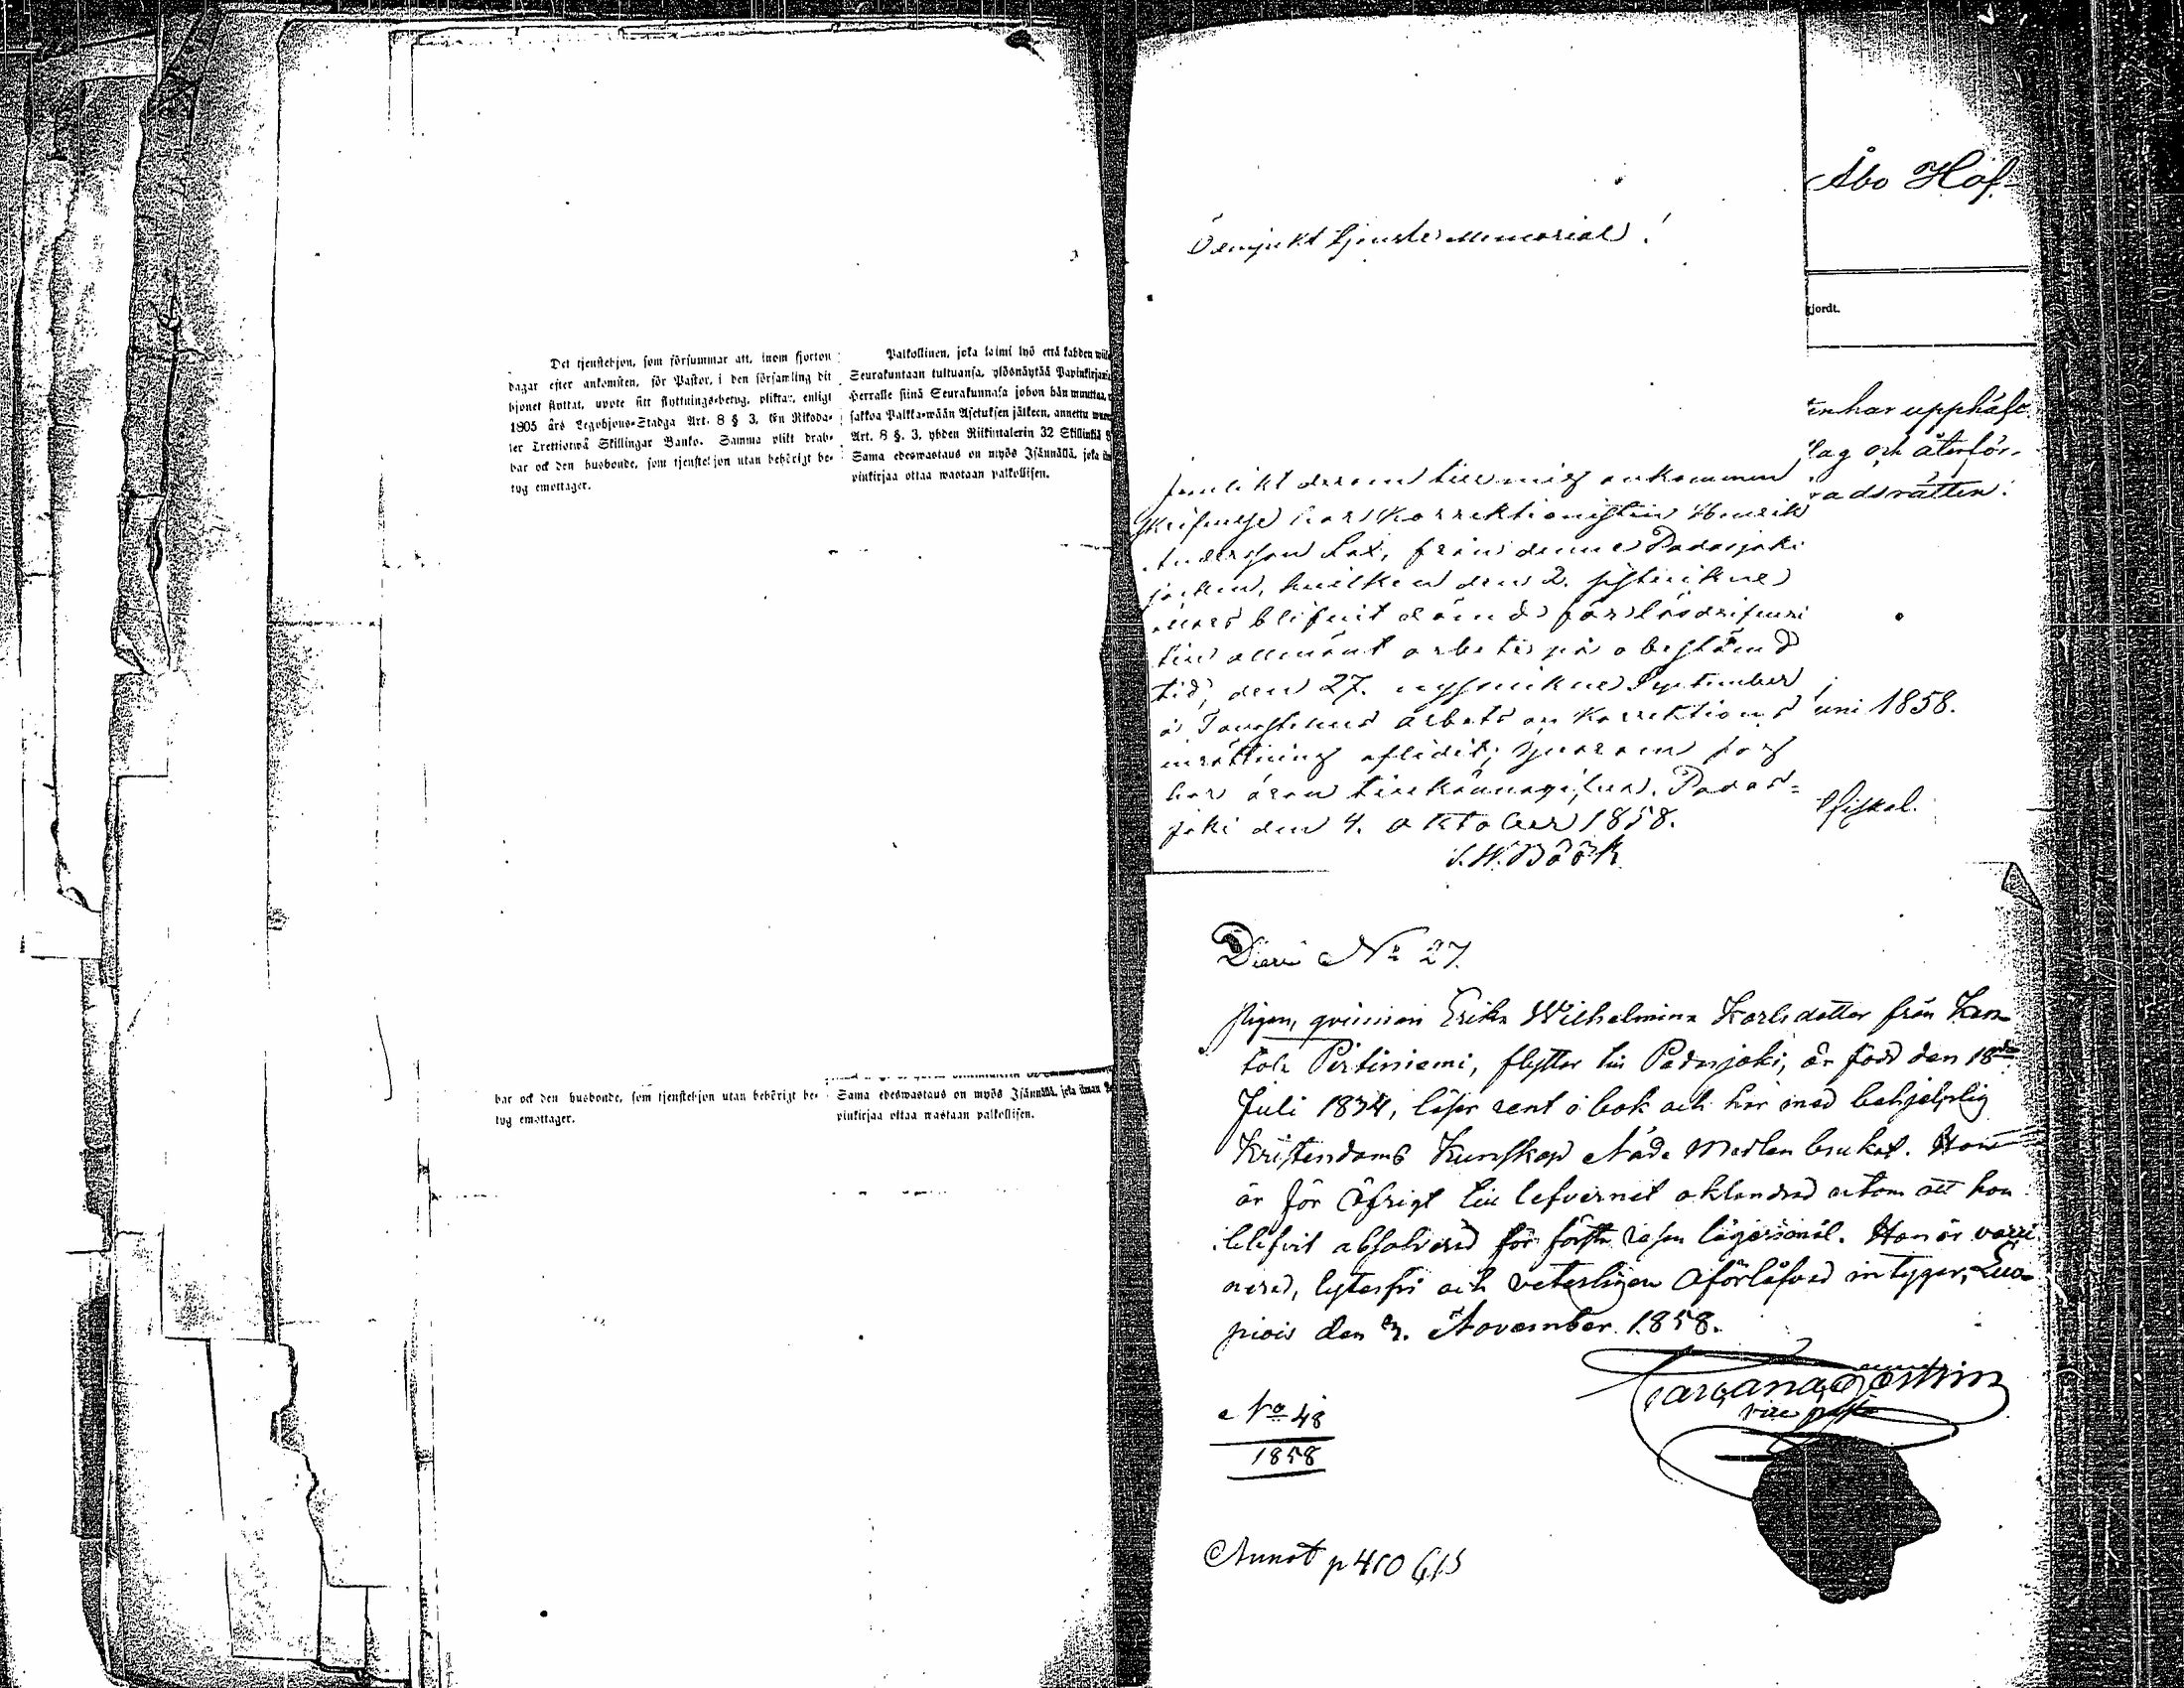 Det tjenstehjon, som försummar att, inom fjorton
dagar efter ankomsten, för Pastor, i den församling dit
hjonet flyttat, uppte sitt flyttnings-betyg, pliktar, enligt
1805 års Legohjons-Stadga Art. 8 § 3, En Riksda-
ler Trettiotwå Skillingar Banko. Samma plikt drab-
bar ock den husbonde, som tjenstehjon utan behörigt be-
tyg emottager.
Palkollinen, joka laimi lyö että kahden
Seurakuntaan tultuansa, ylösnäytää
Herralle siinä Seurakunnasa johon hän muuttaa,
sakkoa Palkka-wään Asetuksen jälkeen, annettu
Art. 8 §. 3, yhden Riikintalerin 32 Skillinkiä
Sama edeswastaus on myös Isännällä, joka
pinkirjaa ottaa wastaan palkollisen.
bar ock den husbonde, som tjenstehjon utan behörigt be-
tyg emottager.
Sama edeswastaus on myös Isännällä, joka ilman
pinkirjaa ottaa wastaan palkollisen.
Åbo Hof-
gjordt.
har upphäft
lag och återför-
radsrätten.
uni 1858.
fiskal.
Ödmjukt tjenstes Memorial!
Jemlikt derom till mig ankommen
skrifvelse har Korrektionisten Henrik
Andersson Lax, från denne Padasjoki
socken, hvilken den 2. sistvikne
mars blifvit dömd för lösdrifveri
till allmänt arbete på obestämd
tid, den 27. nyssvikne September
å Tavastehus arbets o Korrektions
inrättning aflidit; hvarom jag
har äran tillkännagifva. Padas-
joki den 4. oktober 1858.
S.W. Böök
Diari No 27.
Pigan, qvinnan Erika Wilhelmina Karlsdotter från Kan-
tola Pirttiniemi, flyttar till Padasjoki, är född den 18de
Juli 1834, läser rent i bok och har med behjelplig
Kristendoms Kunskap Nåde Medlen brukat. Hon
är för öfrigt till lefvernet oklandrad utom att hon
blifvit absolverad för första resan lägersmål. Hon är vacci
nerad, lytesfri och veterligen oförlofvad intygar; Luo-
piois den 3. November 1858.
vice past
No 48
1858
Annot p 410 615